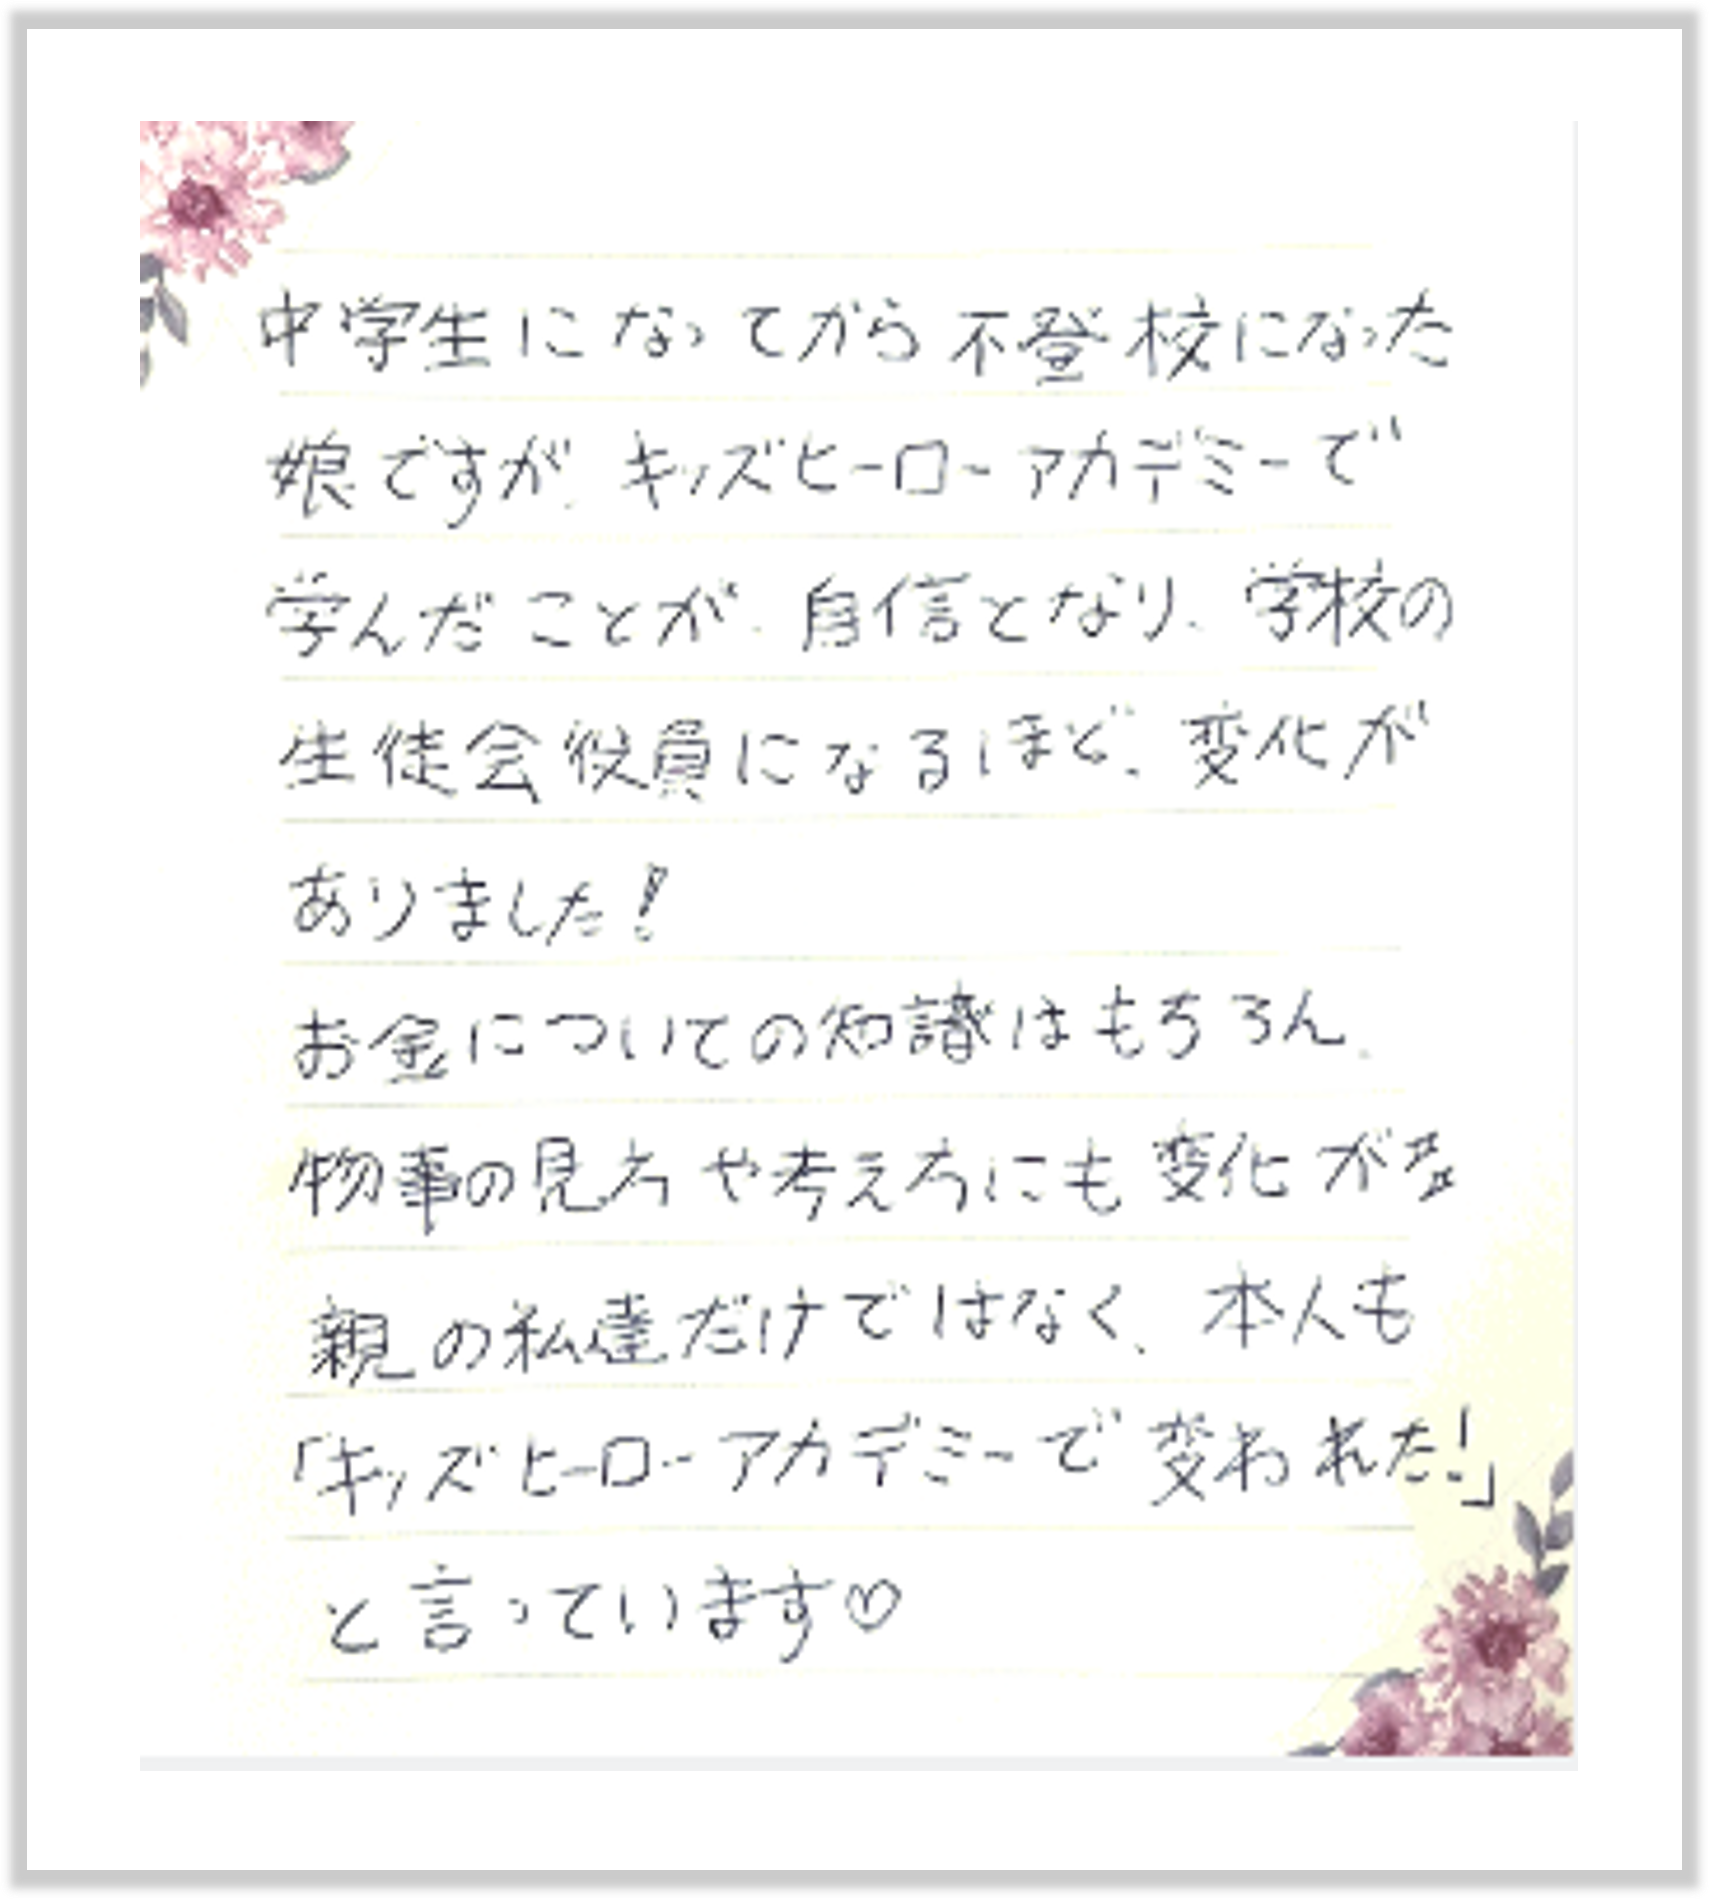 中学生になってから不登校になった
娘ですが、キッズヒーローアカデミーで
学んだことが、自信となり、学校の
生徒会役員になるほど、変化が
ありました!
お金についての知識はもちろん、
物事の見方や考え方にも変化が
親の私達だけではなく、本人も
「キッズヒーローアカデミーで変われた!」
と言っています♡